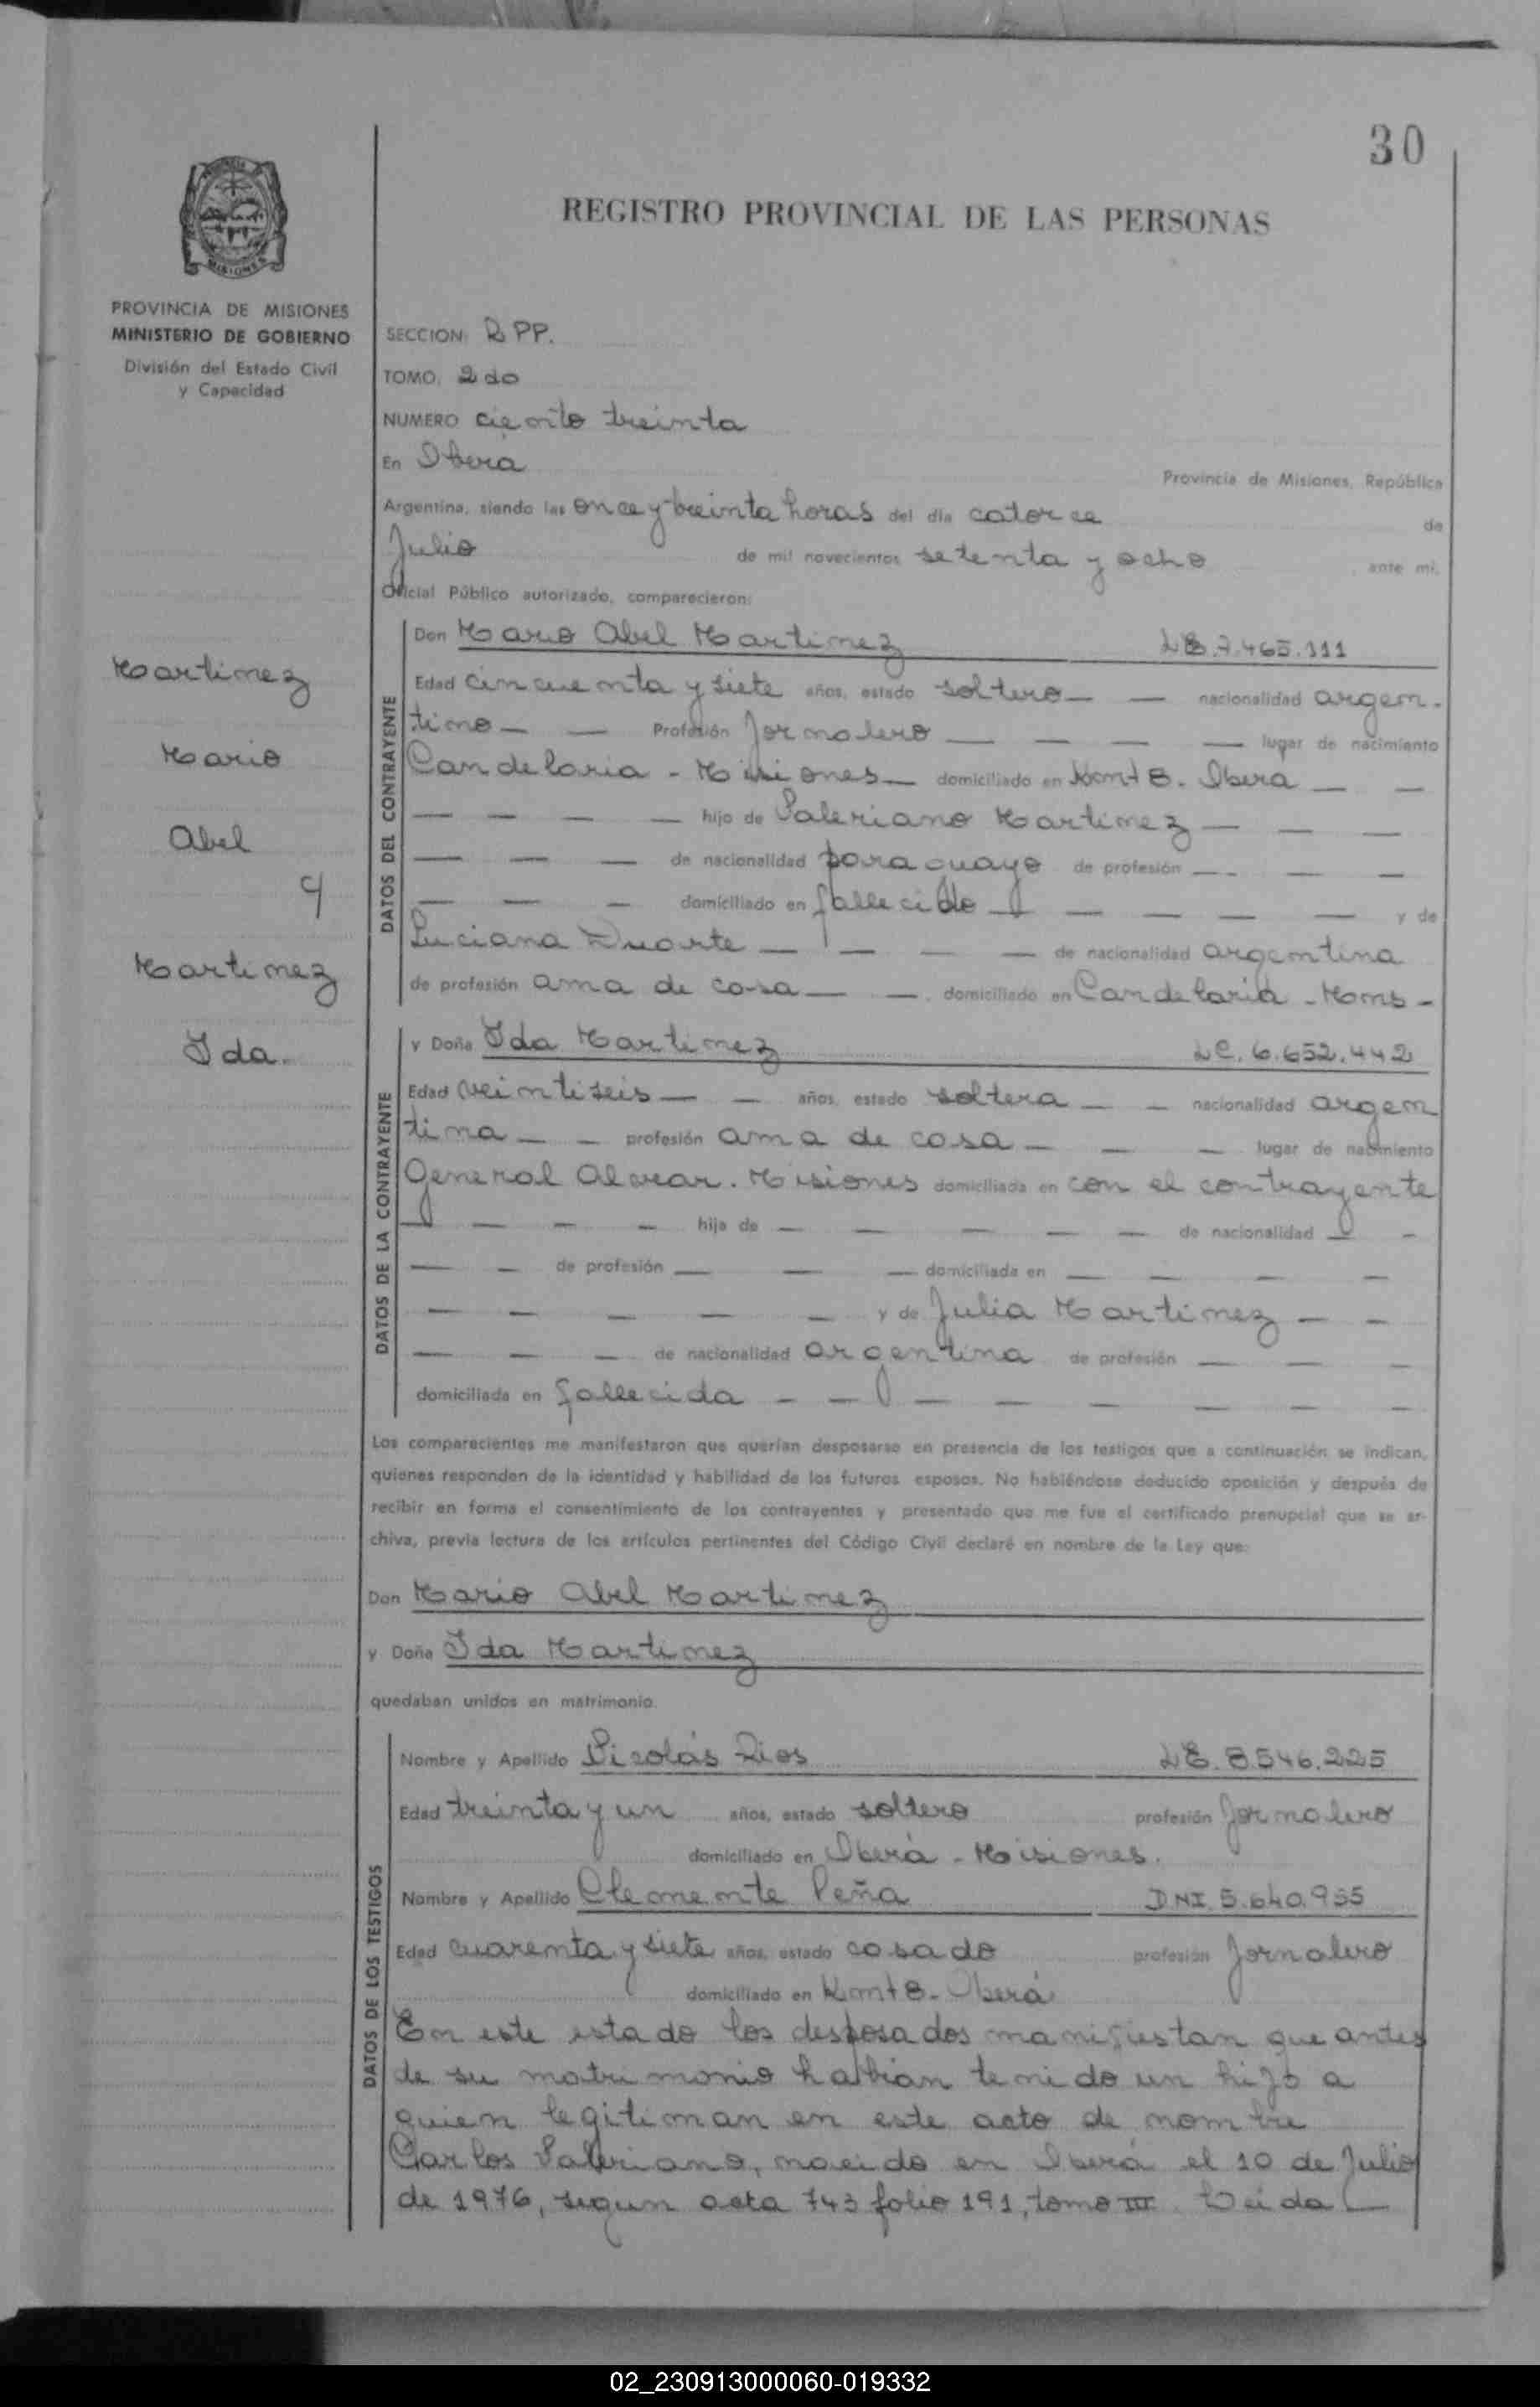 30
REGISTRO PROVINCIAL DE LAS PERSONAS
MISIONES
PROVINCIA DE MISIONES
MINISTERIO DE GOBIERNO
División del Estado Civil
y Capacidad
SECCION: RPP.
TOMO, 2do
NUMERO ciento treinta
En Obera
Provincia de Misiones, República
Argentina, siendo las once y treinta horas del día catorce de
Julio de mil novecientos setenta y ocho ante mi,
Oficial Público autorizado, comparecieron:
Martinez
Mario
Abel
y
Martinez
Ida.
DATOS DEL CONTRAYENTE
Don Mario Abel Martinez LE.7.465.111
Edad cincuenta y siete años, estado soltero — — nacionalidad argen-
tino — — Profesión Jornalero — — — — lugar de nacimiento
Candelaria - Misiones — domiciliado en Km+8. Obera — —
— — — — hijo de Valeriano Martinez — — —
— — — de nacionalidad paraguayo de profesión — — —
— — — domiciliado en fallecido — — — — — y de
Luciana Duarte — — — — de nacionalidad argentina
de profesión ama de casa — — , domiciliado en Candelaria - Mnes -
DATOS DE LA CONTRAYENTE
y Doña Ida Martinez LC. 6.652.442
Edad veintiseis — — años, estado soltera — — nacionalidad argen
tina — — profesión ama de casa — — — lugar de nacimiento
General Alvear. Misiones domiciliada en con el contrayente
— — — — hija de — — — — de nacionalidad — -
— — de profesión — — — domiciliada en — — — —
— — — — — y de Julia Martinez — —
— — — de nacionalidad argentina de profesión — — —
domiciliada en fallecida — — — — — — — —
Los comparecientes me manifestaron que querían desposarse en presencia de los testigos que a continuación se indican,
quienes responden de la identidad y habilidad de los futuros esposos. No habiéndose deducido oposición y después de
recibir en forma el consentimiento de los contrayentes y presentado que me fue el certificado prenupcial que se ar-
chiva, previa lectura de los artículos pertinentes del Código Civil declaré en nombre de la Ley que:
Don Mario Abel Martinez
y Doña Ida Martinez
quedaban unidos en matrimonio.
DATOS DE LOS TESTIGOS
Nombre y Apellido Nicolás Rios LE. 8.546.225
Edad treinta y un años, estado soltero profesión Jornalero
domiciliado en Oberá - Misiones.
Nombre y Apellido Clemente Peña DNI 5.640.955
Edad cuarenta y siete años, estado casado profesión Jornalero
domiciliado en Km+8- Oberá
En este estado los desposados manifiestan que antes
de su matrimonio habian tenido un hijo a
quien legitiman en este acto de nombre
Carlos Valeriano, nacido en Oberá el 10 de Julio
de 1976, segun acta 743 folio 191, tomo III. Leida —
02_230913000060-019332